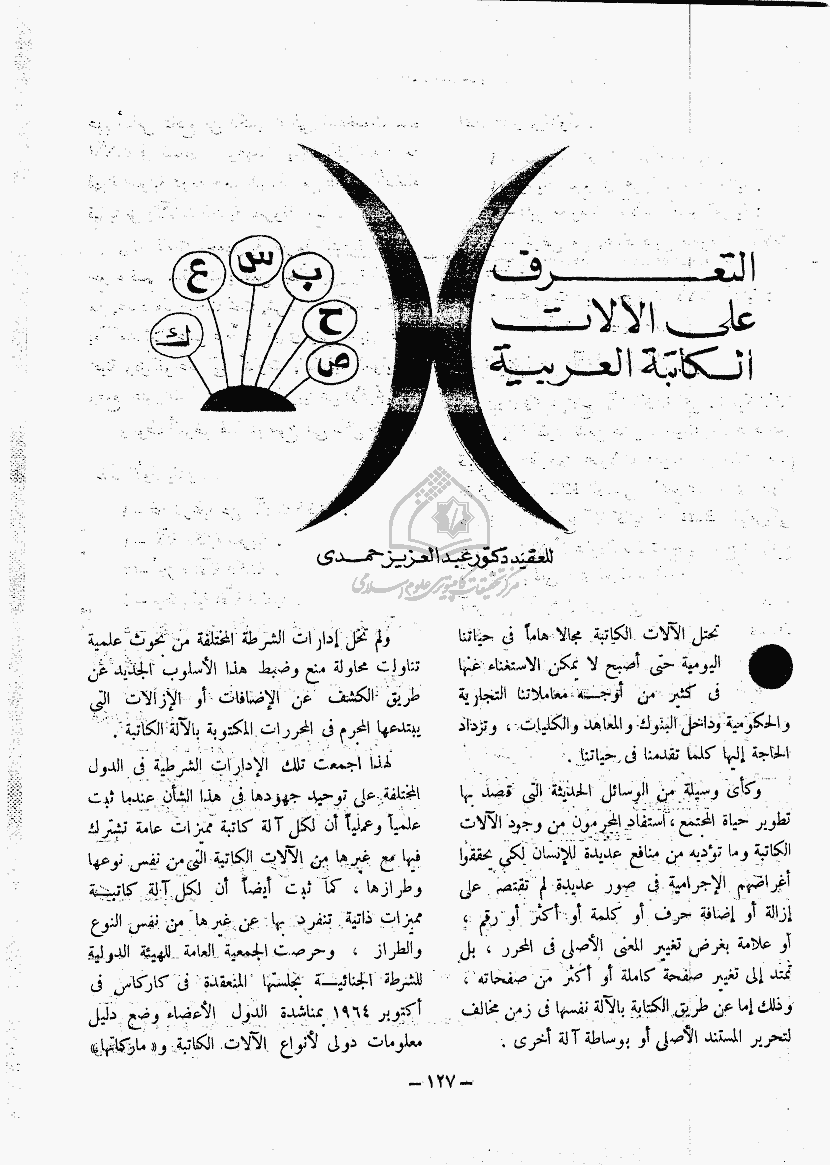 التعرف
على الآلات
الكاتبة العربية
ع
س
ب
ح
ص
ك
للعقيد دكتور عبد العزيز حمدى
مركز تحقیقات کامپیوتری علوم اسلامی
تحتل الآلات الكاتبة مجالا هاماً فى حياتنا
اليومية حتى أصبح لا يمكن الاستغناء عنها
فى كثير من أوجـه معاملاتنا التجارية
والحكومية وداخل البنوك والمعاهد والكليات ، وتزداد
الحاجة إليها كلما تقدمنا فى حياتنا .
وكأى وسيلة من الوسائل الحديثة التى قصد بها
تطوير حياة المجتمع ، استفاد المجرمون من وجود الآلات
الكاتبة وما تؤديه من منافع عديدة للإنسان لكي يحققوا
أغراضهم الإجرامية فى صور عديدة لم تقتصر على
إزالة أو إضافة حرف أو كلمة أو أكثر أو رقم ،
أو علامة بغرض تغيير المعنى الأصلى فى المحرر ، بل
تمتد إلى تغيير صفحة كاملة أو أكثر من صفحاته ،
وذلك إما عن طريق الكتابة بالآلة نفسها فى زمن مخالف
لتحرير المستند الأصلى أو بوساطة آلة أخرى .
ولم تخل إدارات الشرطة المختلفة من بحوث علمية
تناولت محاولة منع وضبط هذا الأسلوب الجديد عن
طريق الكشف عن الإضافات أو الإزالات التى
يبتدعها المجرم فى المحررات المكتوبة بالآلة الكاتبة .
لهذا اجمعت تلك الإدارات الشرطية فى الدول
المختلفة على توحيد جهودها فى هذا الشأن عندما ثبت
علمياً وعملياً أن لكل آلة كاتبة مميزات عامة تشترك
فيها مع غيرها من الآلات الكاتبة التى من نفس نوعها
وطرازها ، كما ثبت أيضاً أن لكل آلة كاتبـة
مميزات ذاتية تنفرد بها عن غيرها من نفس النوع
والطراز ، وحرصت الجمعية العامة للهيئة الدولية
للشرطة الجنائيـة بجلستها المنعقدة فى كاركاس فى
أكتوبر ١٩٦٤ بمناشدة الدول الأعضاء وضع دليل
معلومات دولى لأنواع الآلات الكاتبة و« ماركاتها»
– ١٢٧ –